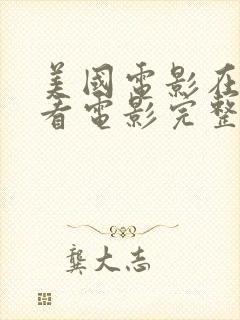 美國電影在
看電影完整
龔大志